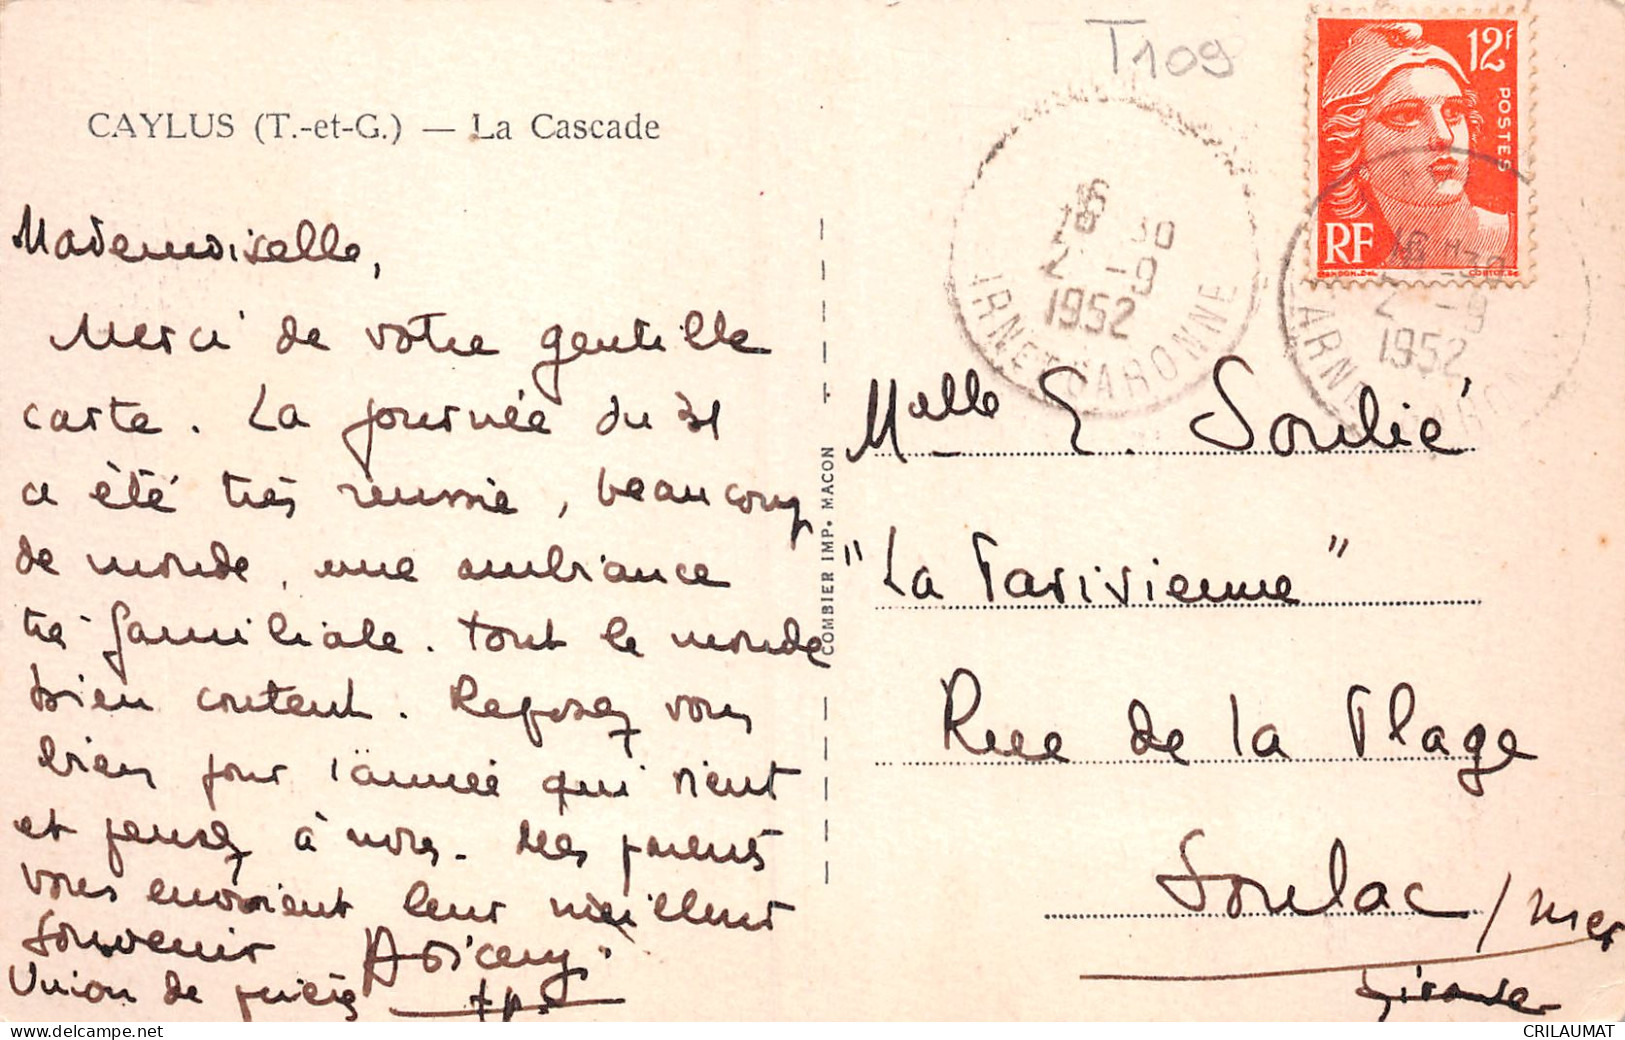 CAYLUS (T.-et-G.) — La Cascade
Mademoiselle,
Merci de votre gentille
carte. La journée du 31
a été très réussie, beaucoup
de monde, une ambiance
très familiale. Tout le monde
bien content. Reposez vous
bien pour l'année qui vient
et pensez à nous. Mes parents
vous envoient leur meilleur
souvenir
Union de prières
COMBIER IMP. MACON
T109
12F
POSTES
RF
16 H 30
2 -9
1952
TARN ET GARONNE
16 H 30
2 -9
1952
TARN ET GARONNE
Melle E. Soulié
"La Parisienne"
Rue de la Plage
Soulac / mer
Gironde
CRILAUMAT